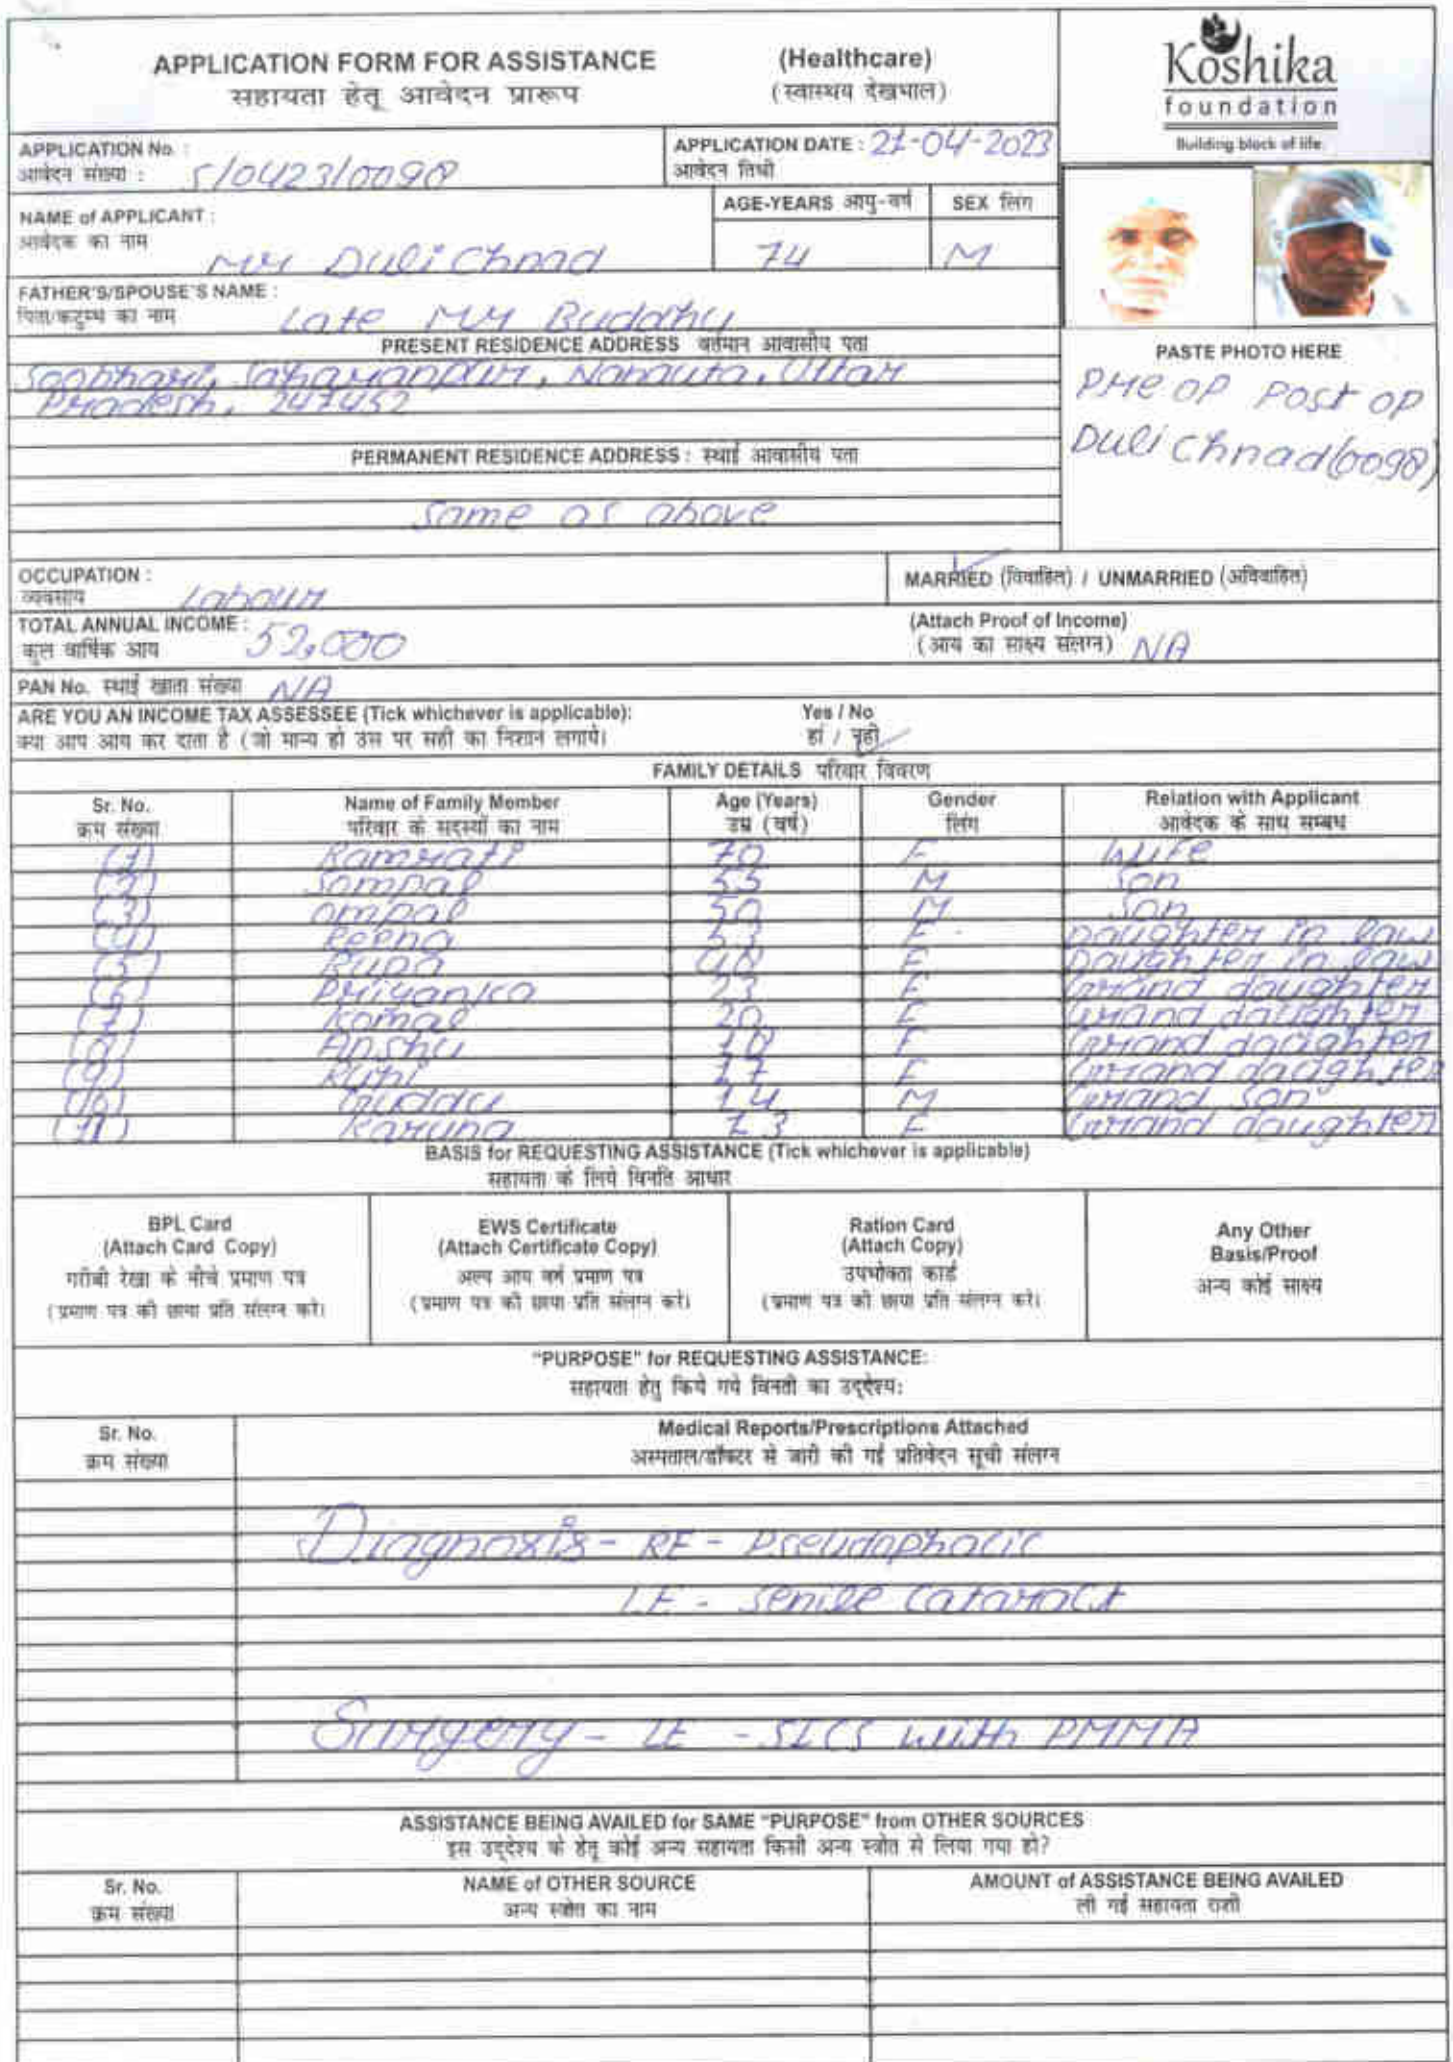 APPLICATION FORM FOR ASSISTANCE (Healthcare)
सहायता हेतू आवेदन प्रारूप (स्वास्थय देखभाल)
Koshika
foundation
Building block of life
APPLICATION No. : S/0423/0098
आवेदन संख्या :
APPLICATION DATE : 21-04-2023
आवेदन तिथी
NAME of APPLICANT : AGE-YEARS आयु-वर्ष SEX लिंग
आवेदक का नाम Mr Duli Chnad 74 M
FATHER'S/SPOUSE'S NAME :
पिता/कटुम्ब का नाम Late Mr Buddhu
PRESENT RESIDENCE ADDRESS वर्तमान आवासीय पता
Saharanpur, Nanauta, Uttar
Pradesh, 247452
PASTE PHOTO HERE
Pre op Post op
Duli Chnad (0098)
PERMANENT RESIDENCE ADDRESS : स्थाई आवासीय पता
Same as above
OCCUPATION :
व्यवसाय Labour
MARRIED (विवाहित) / UNMARRIED (अविवाहित)
TOTAL ANNUAL INCOME : 52,000
कुल वार्षिक आय
(Attach Proof of Income)
(आय का साक्ष्य संलग्न) NA
PAN No. स्थाई खाता संख्या NA
ARE YOU AN INCOME TAX ASSESSEE (Tick whichever is applicable): Yes / No
क्या आप आय कर दाता है (जो मान्य हो उस पर सही का निशान लगाये। हां / नही
FAMILY DETAILS परिवार विवरण
Sr. No. Name of Family Member Age (Years) Gender Relation with Applicant
क्रम संख्या परिवार के सदस्यों का नाम उम्र (वर्ष) लिंग आवेदक के साथ सम्बध
(1) Ramrati 70 F Wife
(2) Sompal 55 M Son
(3) Ompal 50 M Son
(4) Reena 53 F Daughter in law
(5) Rupa 48 F Daughter in law
(6) Priyanka 23 F Grand daughter
(7) Komal 20 F Grand daughter
(8) Anshu 18 F Grand daughter
(9) Ruhi 17 F Grand daughter
(10) Guddu 14 M Grand son
(11) Karuna 13 F Grand daughter
BASIS for REQUESTING ASSISTANCE (Tick whichever is applicable)
सहायता के लिये विनति आधार
BPL Card
(Attach Card Copy)
गरीबी रेखा के नीचे प्रमाण पत्र
(प्रमाण पत्र की छाया प्रति संलग्न करे।
EWS Certificate
(Attach Certificate Copy)
अल्प आय वर्ग प्रमाण पत्र
(प्रमाण पत्र की छाया प्रति संलग्न करे।
Ration Card
(Attach Copy)
उपभोक्ता कार्ड
(प्रमाण पत्र की छाया प्रति संलग्न करे।
Any Other
Basis/Proof
अन्य कोई साक्ष्य
"PURPOSE" for REQUESTING ASSISTANCE:
सहायता हेतु किये गये विनती का उद्देश्य:
Sr. No. Medical Reports/Prescriptions Attached
क्रम संख्या अस्पताल/डॉक्टर से जारी की गई प्रतिवेदन सूची संलग्न
Diagnoxis - RE - Pseudophacic
LE - Senile Cataract
Surgery - LE - SICS with PMMA
ASSISTANCE BEING AVAILED for SAME "PURPOSE" from OTHER SOURCES
इस उद्देश्य के हेतू कोई अन्य सहायता किसी अन्य स्त्रोत से लिया गया हो?
Sr. No. NAME of OTHER SOURCE AMOUNT of ASSISTANCE BEING AVAILED
क्रम संख्या अन्य स्त्रोत का नाम ली गई सहायता राशी